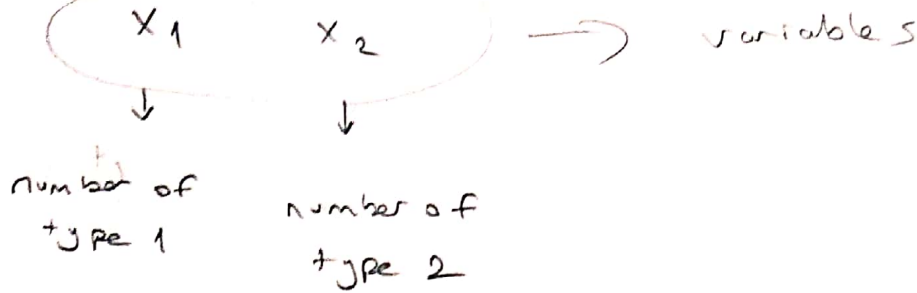 x 1 x 2 → variables
↓ ↓
number of
type 1
number of
type 2